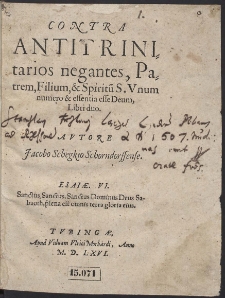 CONTRA
ANTITRINI,
tarios negantes, Pa,
trem, Filium, & Spiritū S. Vnum
numero & essentia esse Deum,
Libri duo.
AVTORE D
Iacobo Schegkio Schorndorffense.
ESAIAE. VI.
Sanctus, Sanctus, Sanctus Dominus Deus Sa-
baoth, plena est omnis terra gloria eius.
TVBINGAE,
Apud Viduam Vlrici Morhardi, Anno
M. D. LXVI.
15.071